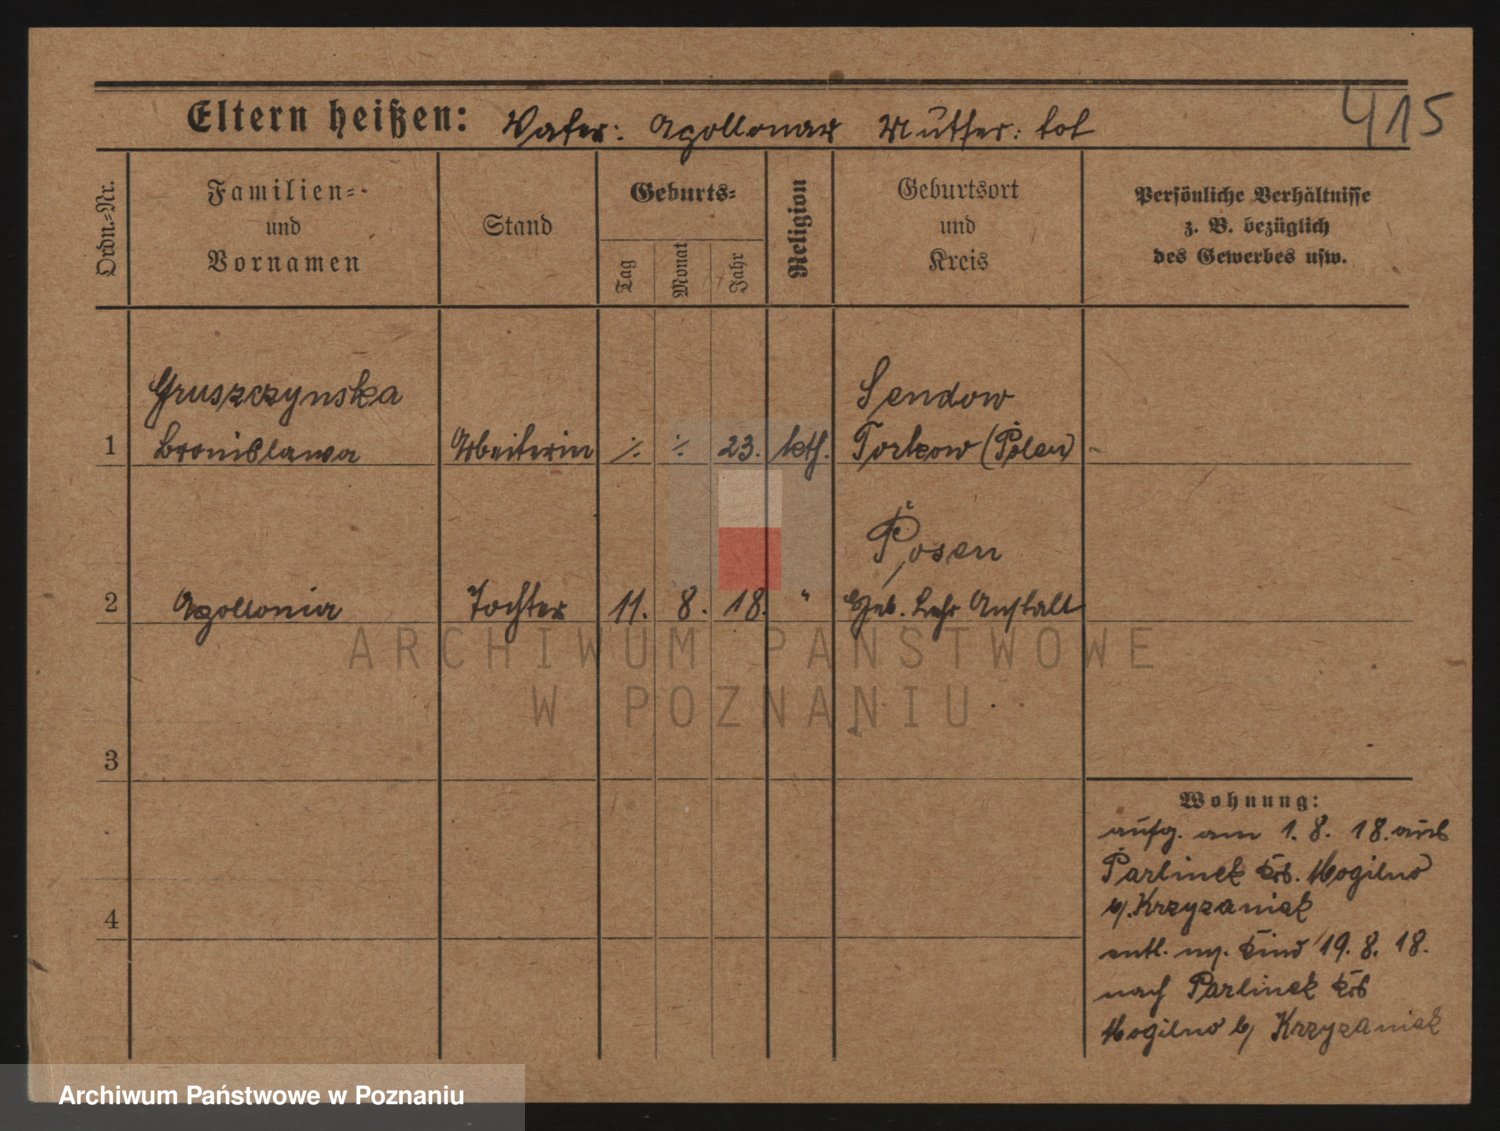 415
Eltern heißen: Vater: Apollonar Mutter: tot
Ordn.-Nr.
Familien-
und
Vornamen
Stand
Geburts-
Tag
Monat
Jahr
Religion
Geburtsort
und
Kreis
Persönliche Verhältnisse
z. B. bezüglich
des Gewerbes usw.
Gruszczynska Sendow
1 Bronislawa Arbeiterin ⁒ ⁒ 23. kth. Torkow (Polen) -
Posen
2 Apollonia Tochter 11. 8. 18. " Geb. Lehr Anstalt
3
4
Wohnung:
aufg. am 1. 8. 18. aus
Parlinek Krs. Mogilno
b/. Krzyzaniak
entl. m/. Kind 19. 8. 18.
nach Parlinek Krs
Mogilno b/ Krzyzaniak
ARCHIWUM PAŃSTWOWE
W POZNANIU
Archiwum Państwowe w Poznaniu